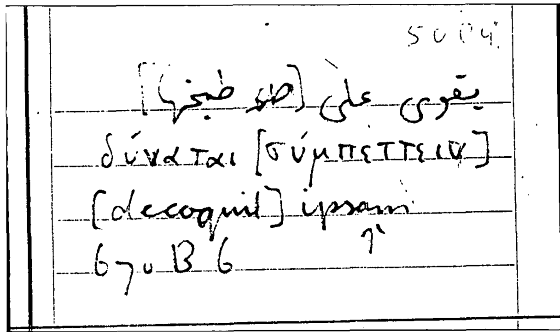 يقوى على [طبخها]
δύναται [σύμπέττειν]
[decoquit] ipsam
670 B 6